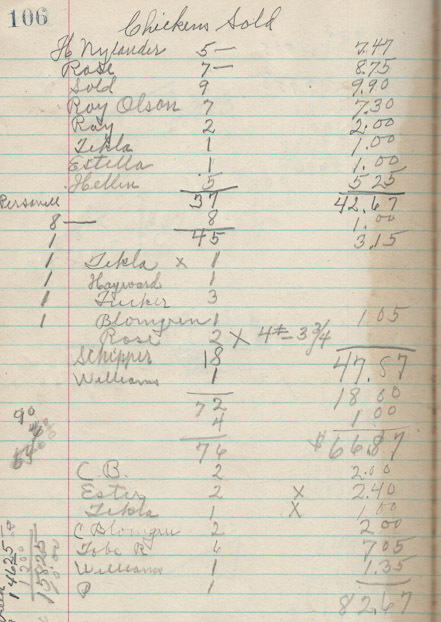 106
Chickens Sold
H Nylander 5— 7.47
Rose 7— 8.75
Sold 9 9.90
Roy Olson 7 7.30
Ray 2 2.00
Tekla 1 1.00
Estella 1 1.00
Hellen 5 5 25
Personell 37 42.67
8— 8 1.00
1 45 3.15
1 Tekla x 1
1 Hayward 1
1 Tucker 3
1 Blomgren 1 1 05
Rose 2 X 4#-3 3/4
Schipper 18 47.87
Williams 1 18 00
72 1 00
4
76 $66.87
90
C. B. 2 2.00
Ester 2 X 2.40
Tekla 1 X 1 00
C Blomgren 2 2 00
Tobe 6 7 05
Williams 1 1.35
P 1
82.67
14625
1200
15825